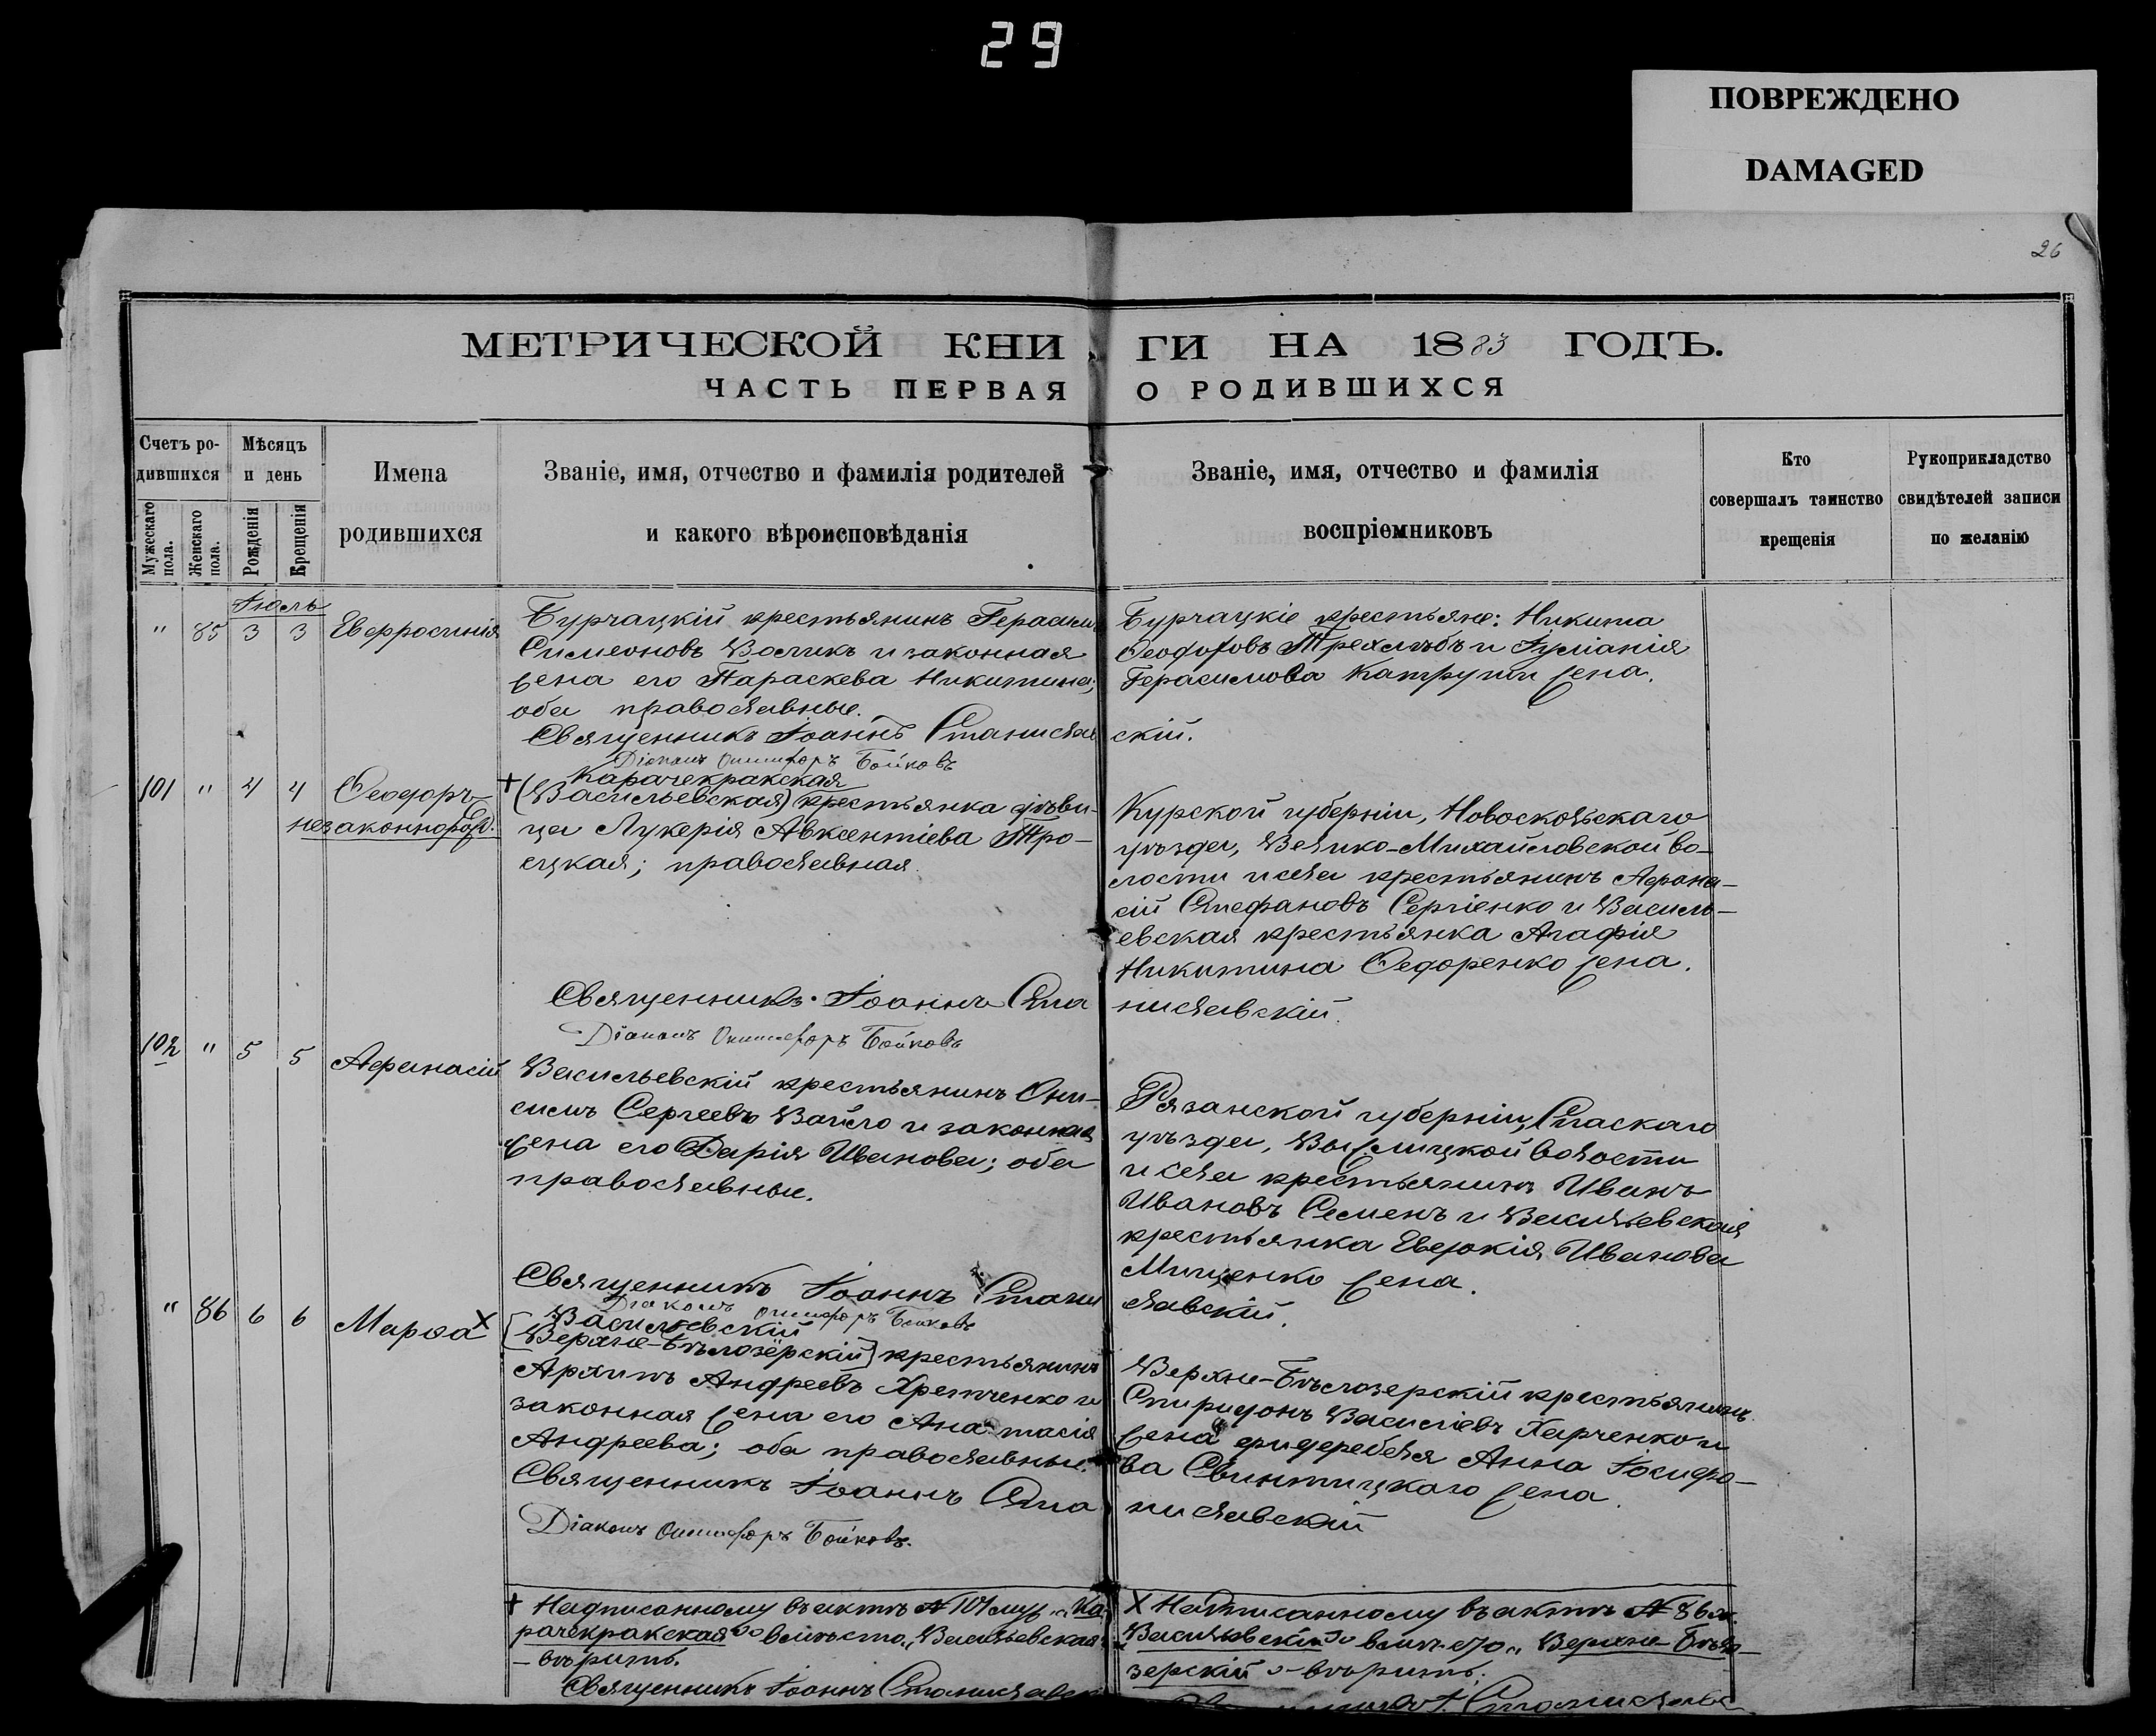 29
ПОВРЕЖДЕНО
DAMAGED
26
МЕТРИЧЕСКОЙ КНИГИ НА 1883 ГОДЪ.
ЧАСТЬ ПЕРВАЯ О РОДИВШИХСЯ
Счетъ ро-
дившихся
Мужескаго пола.
Женскаго пола.
Мѣсяцъ
и день
Рожденія
Крещенія
Имена
родившихся
Званіе, имя, отчество и фамилія родителей
и какого вѣроисповѣданія
Званіе, имя, отчество и фамилія
воспріемниковъ
Кто
совершалъ таинство
крещенія
Рукоприкладство
свидѣтелей записи
по желанію
Іюль
" 85 3 3 Евфросинія
Бурчацкій крестьянинъ Герасимъ
Симеоновъ Воликъ и законная
жена его Параскева Никитина;
оба православные.
Бурчацкіе крестьяне: Никита
Ѳеодоровъ Трехлѣбъ и Іуліанія
Герасимова Катрути жена.
Священникъ Іоаннъ Станиславскій.
Діаконъ Онисифоръ Бойковъ
101 " 4 4 Ѳеодоръ
незаконнорожд.
+ Карачекракская
(Васильевская) крестьянка дѣви-
ца Лукерія Авксентіева Тро-
ецкая; православная.
Курской губерніи, Новоскольскаго
уѣзда, Велико-Михайловской во-
лости и села крестьянинъ Аѳана-
сій Стефановъ Сергіенко и Василь-
евская крестьянка Агафія
Никитина Ѳедоренко жена.
Священникъ Іоаннъ Станиславскій.
Діаконъ Онисифоръ Бойковъ
102 " 5 5 Аѳанасій
Васильевскій крестьянинъ Они-
симъ Сергеевъ Вайло и законная
жена его Дарія Иванова; оба
православные.
Рязанской губерніи, Спаскаго
уѣзда, волости
и села крестьянинъ Иванъ
Ивановъ Семенъ и Васильевская
крестьянка Евдокія Иванова
Мищенко жена.
Священникъ Іоаннъ Станиславскій.
Діаконъ Онисифоръ Бойковъ
" 86 6 6 Марѳа X
Васильевскій
[Верхне-Бѣлозёрскій] крестьянинъ
Архипъ Андреевъ Хретченко и
законная жена его Анастасія
Андреева; оба православные.
Верхне-Бѣлозерскій крестьянинъ
Спиридонъ Василіевъ Харченко и
жена фидфебеля Анна Іосифо-
ва Свинтицкаго жена.
Священникъ Іоаннъ Станиславскій
Діаконъ Онисифоръ Бойковъ.
+ Надписанному въ актѣ № 101му „Ка-
рачекракская" вмѣсто „Васильевская"
– вѣрить.
Священникъ Іоаннъ Станиславск
X Надписанному въ актѣ № 86
„Васильевскій" вмѣсто „Верхне-Бѣло-
зерскій" – вѣрить.